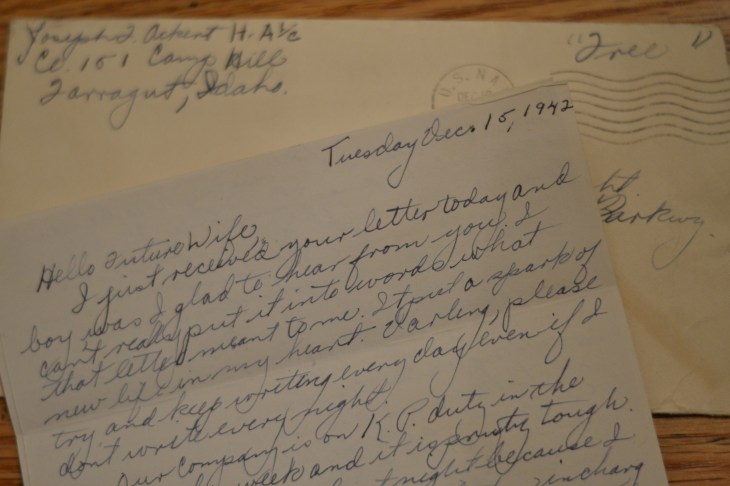 Joseph J. Ockert H. A 2/C
Co. 151 Camp Hill
Farragut, Idaho.
"Free"
U.S. NA
Parkwy.
Tuesday Dec. 15, 1942
Hello Future Wife,
I just received your letter today and
boy was I glad to hear from you. I
can't really put it into words what
that letter meant to me. It put a spark of
new life in my heart. Darling, please
try and keep writing every day even if I
dont write every night.
Our company is on K.P. duty in the
week and it is pretty tough.
night because I
incharg